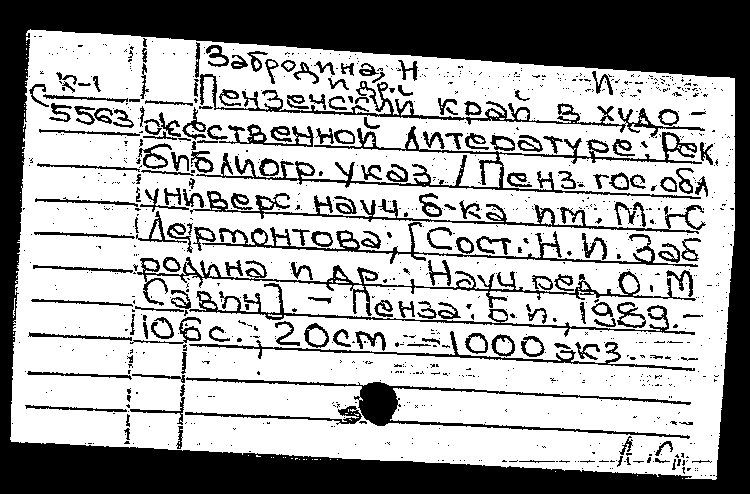 Забродина, Н И
и др.
К-1
5563
Пензенский край в худо-
жественной литературе: Рек.
библиогр. указ. / Пенз. гос. обл
универс. науч. б-ка им. М. Ю
Лермонтова; [Сост.: Н. И. Заб
родина и др.; Науч. ред. О. М
Савин]. - Пенза: Б. и., 1989. -
106 с.; 20 см. - 1000 экз.